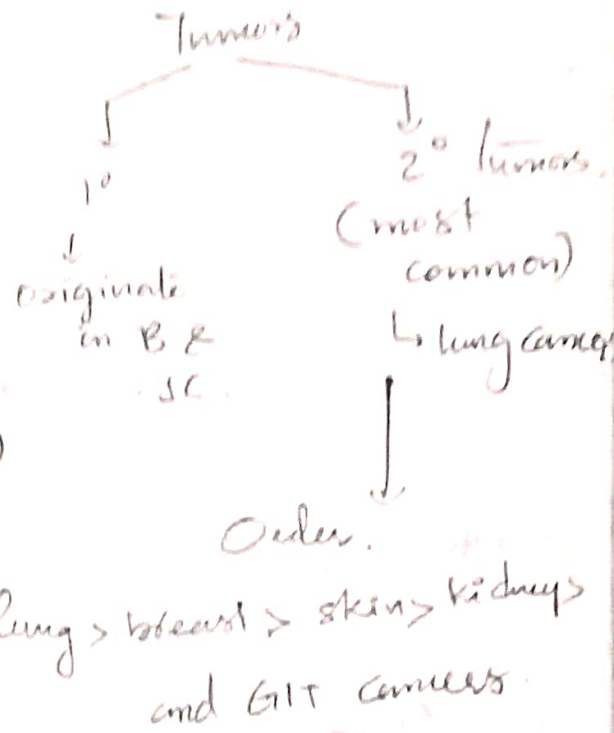 Tumors
1°
originate
in B &
SC.
2° tumors.
(most
common)
↳ lung cancer
)
Order.
lung > breast > skin > kidneys >
and GIT cancers.